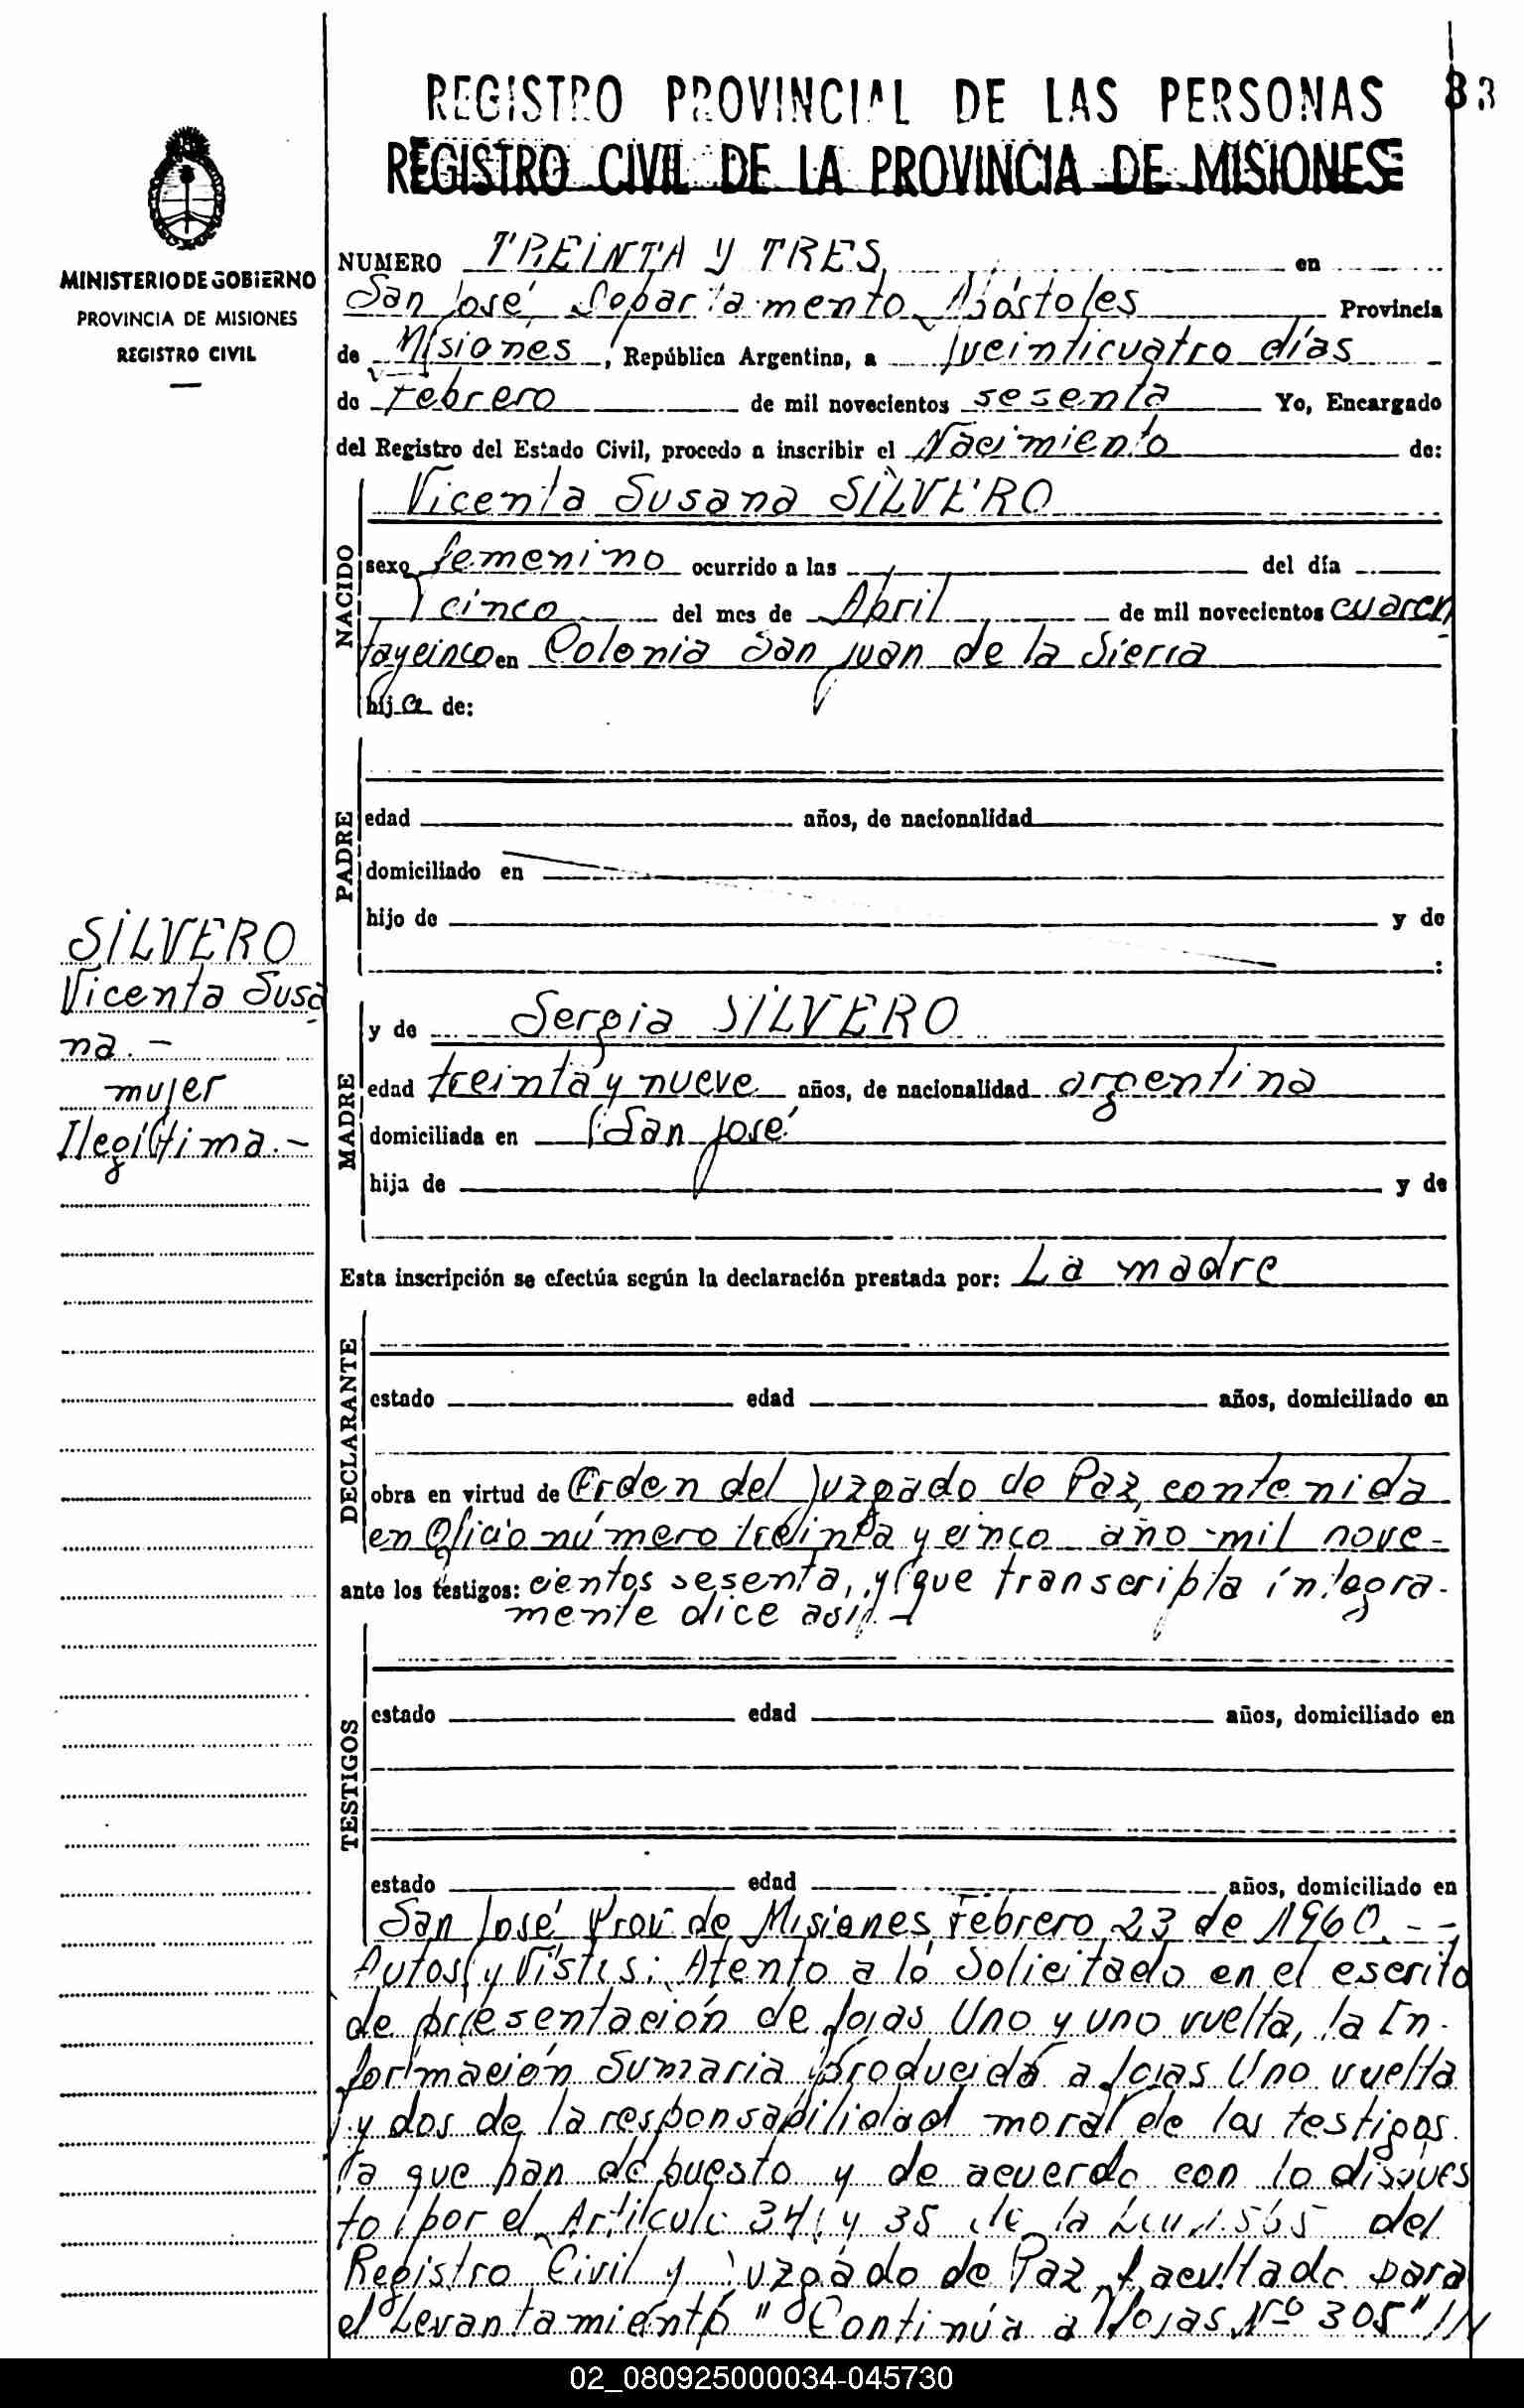 REGISTRO PROVINCIAL DE LAS PERSONAS
33
REGISTRO CIVIL DE LA PROVINCIA DE MISIONES
MINISTERIO DE GOBIERNO
PROVINCIA DE MISIONES
REGISTRO CIVIL
NUMERO TREINTA Y TRES, en
San José, Departamento Apóstoles Provincia
de Misiones, República Argentina, a Veinticuatro días
de Febrero de mil novecientos sesenta Yo, Encargado
del Registro del Estado Civil, procedo a inscribir el Nacimiento de:
NACIDO
Vicenta Susana SILVERO
sexo femenino ocurrido a las del día
cinco del mes de Abril de mil novecientos cuaren
taycinco en Colonia San Juan de la Sierra
hija de:
PADRE
edad años, de nacionalidad
domiciliado en
hijo de y de
:
SILVERO
Vicenta Susa
na.-
mujer
Ilegítima.-
MADRE
y de Sergia SILVERO
edad treinta y nueve años, de nacionalidad argentina
domiciliada en San José
hija de y de
Esta inscripción se efectúa según la declaración prestada por: La madre
DECLARANTE
estado edad años, domiciliado en
obra en virtud de Orden del Juzgado de Paz, contenida
en Oficio número treinta y cinco año mil nove-
ante los testigos: cientos sesenta, y que transcripta íntegra-
mente dice así:-
TESTIGOS
estado edad años, domiciliado en
estado edad años, domiciliado en
San José Prov de Misiones, Febrero 23 de 1960.--
Autos y Vistos: Atento a lo Solicitado en el escrito
de presentación de fojas Uno y uno vuelta, la In-
formación Sumaria producida a fojas Uno vuelta
y dos de la responsabilidad moral de los testigos
que han depuesto y de acuerdo con lo dispues
to por el Artículo 34 y 35 de la Ley 1565 del
Registro Civil y Juzgado de Paz facultado para
el Levantamiento "Continúa a fojas Nº 305" ///
02_080925000034-045730